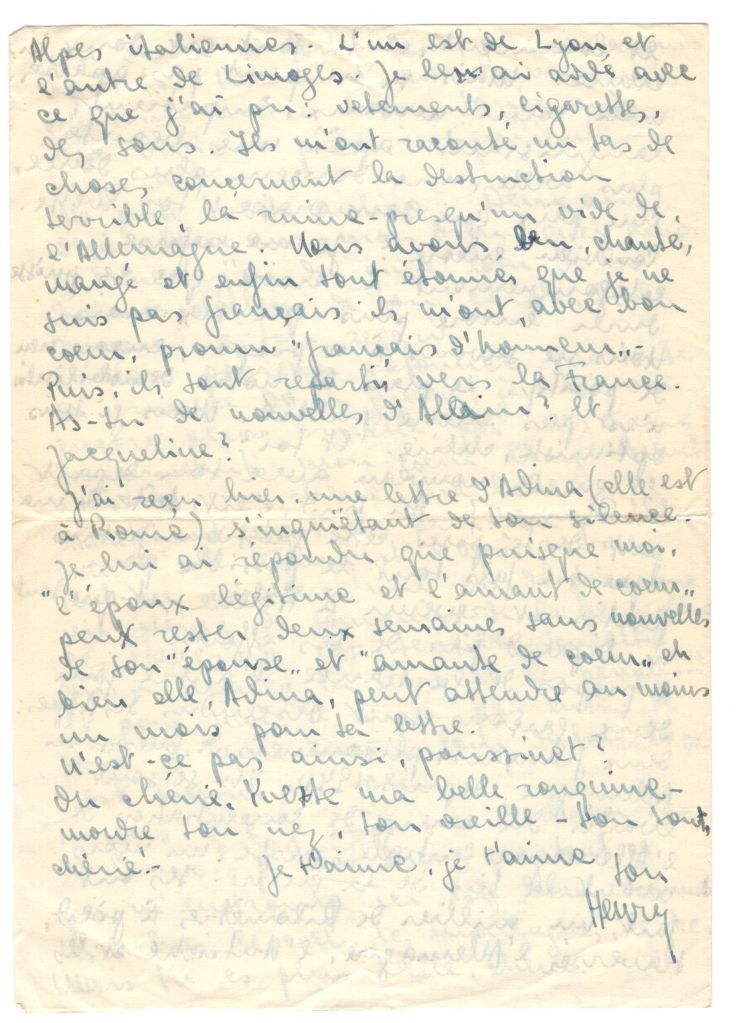 Alpes italiennes. L'un est de Lyon et
l'autre de Limoges. Je les ai aidé avec
ce que j'ai pu: vetements, cigarettes,
des sous. Ils m'ont raconté un tas de
choses concernant la destruction
terrible, la ruine - presqu'un vide de
l'Allemagne. Nous avons bu, chanté,
mangé et enfin tout étonnés que je ne
suis pas français ils m'ont, avec bon
coeur, promu "français d'honneur".-
Puis, ils sont repartis vers la France.
As-tu de nouvelles d'Allain? Et
Jacqueline?
J'ai reçu hier une lettre d'Adina (elle est
à Rome) s'inquiétant de ton silence.
Je lui ai répondu que puisque moi,
"l'époux légitime et l'amant de coeur"
peux rester deux semaines sans nouvelles
de son "épouse" et "amante de coeur" eh
bien elle, Adina, peut attendre au moins
un mois pour ta lettre.
N'est-ce pas ainsi, poussinet?
Oh chérie, Yvette ma belle
mordre ton nez, ton oreille - ton tout,
chérie.- Je t'aime, je t'aime ton
Henry